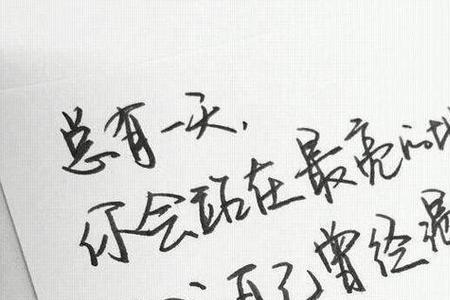 总有一天,
你会站在最亮的地
自己曾经最